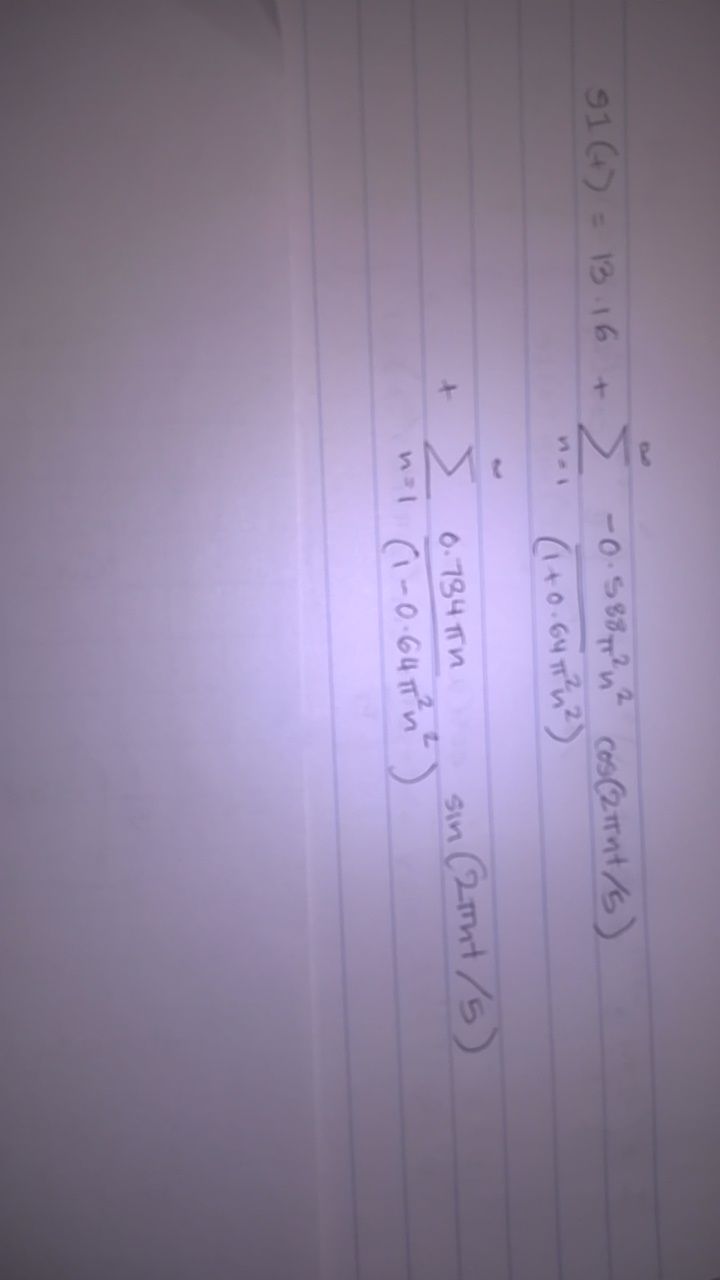 g1(t) = 13.16 + ∞∑n=1 -0.588π²n²/(1+0.64π²n²) cos(2πnt/5)
+ ∞∑n=1 0.784πn/(1-0.64π²n²) sin(2πnt/5)